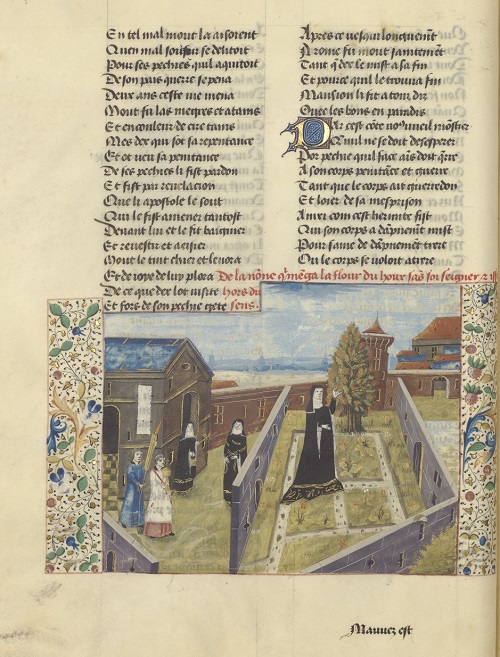 En tel mal mout la aisorent
Quen mal souffrir se delitoit
Pour ses pechies quil aquitoit
De son pais querre se pena
Deux ans ceste vie mena
Mout fu las megres et atains
Et en couleur de cire tains
Mes dex qui sot sa repentance
Et ot veu sa penitance
De ses pechies li fist pardon
Et fist par revelacion
Que li apostole le sout
Qui le fist amener tantost
Devant lui et le fit baignier
Et revestir et aesier
Mout le tint chier et lenora
Et de ioye de luy plora
De ce que dex lot visite
Et fors de son pechie gete
Apres ce vesqui longuement
A rome fu mout saintement
Tant que dex le mist a sa fin
Et pource quil le trouva fin
Mansion li fit a tour dir
Ovec les bons en paradis
Par cest conte nous vueil monstrer
Que nul ne se doit desesperer
Por pechie quil face ains doit querre
A son corps penitance et guerre
Tant que le corps ait guerredon
Et loier de sa mesprison
Auxi com cest hermite fist
Qui son corps a dampnement mist
Pour same de dampnement trere
Ou le corps se voloit atrere
De la nonne qui menga la flour du houx sans soi seigner et issi
hors du
sens.
Mauvez est